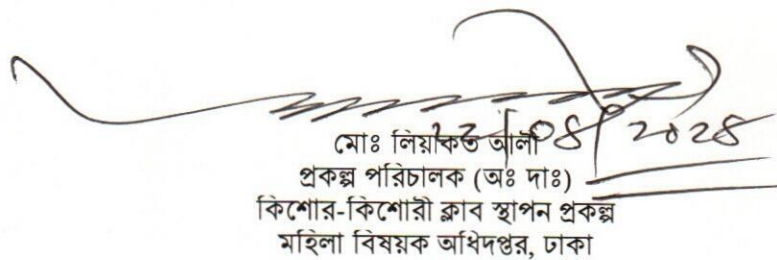 ২২/০৪/২০২৪
মোঃ লিয়াকত আলী
প্রকল্প পরিচালক (অঃ দাঃ)
কিশোর-কিশোরী ক্লাব স্থাপন প্রকল্প
মহিলা বিষয়ক অধিদপ্তর, ঢাকা